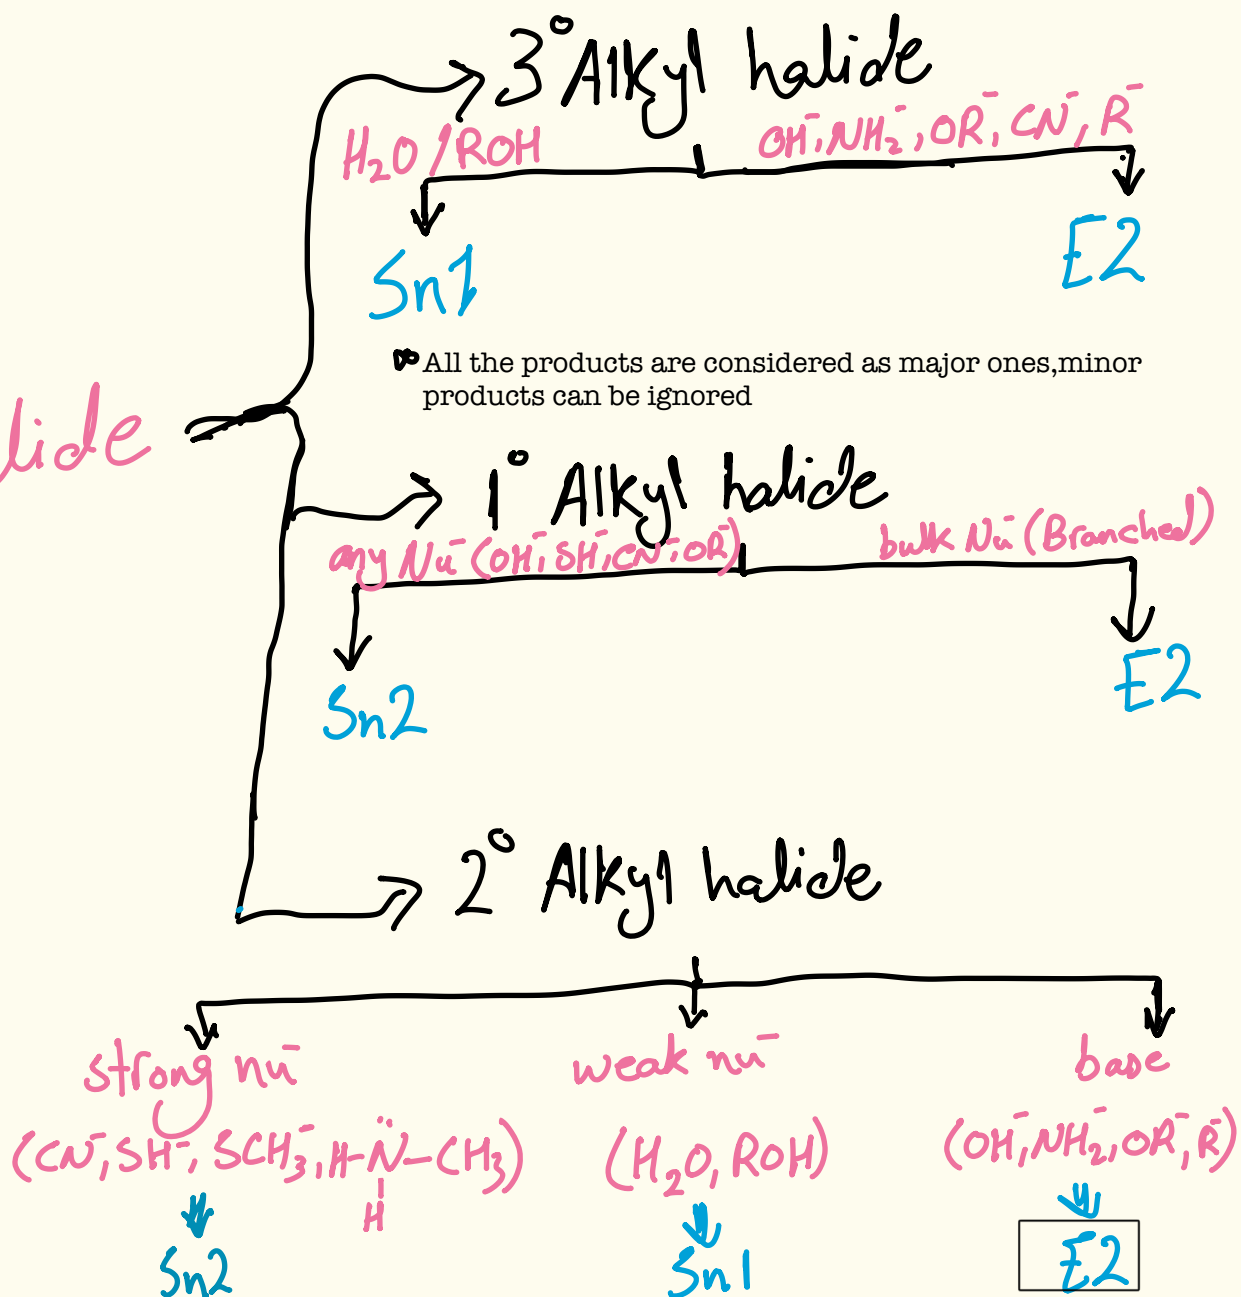 3° Alkyl halide
H₂O / ROH
OH⁻, NH₂⁻, OR⁻, CN⁻, R⁻
Sn1
E2
All the products are considered as major ones,minor
products can be ignored
lide
1° Alkyl halide
any Nu⁻ (OH⁻, SH⁻, CN⁻, OR⁻)
bulk Nu⁻ (Branched)
Sn2
E2
2° Alkyl halide
strong nu⁻
weak nu⁻
base
(CN⁻, SH⁻, SCH₃⁻, H-N̈-CH₃)
H
(H₂O, ROH)
(OH⁻, NH₂⁻, OR⁻, R⁻)
Sn2
Sn1
E2